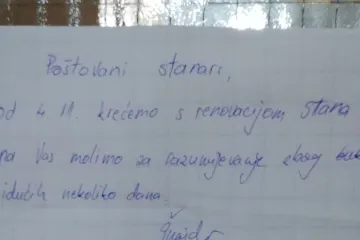 Poštovani stanari,
od 4. 11. krećemo s renovacijom stana
Vas molimo za razumijevanje zbog
idućih nekoliko dana.